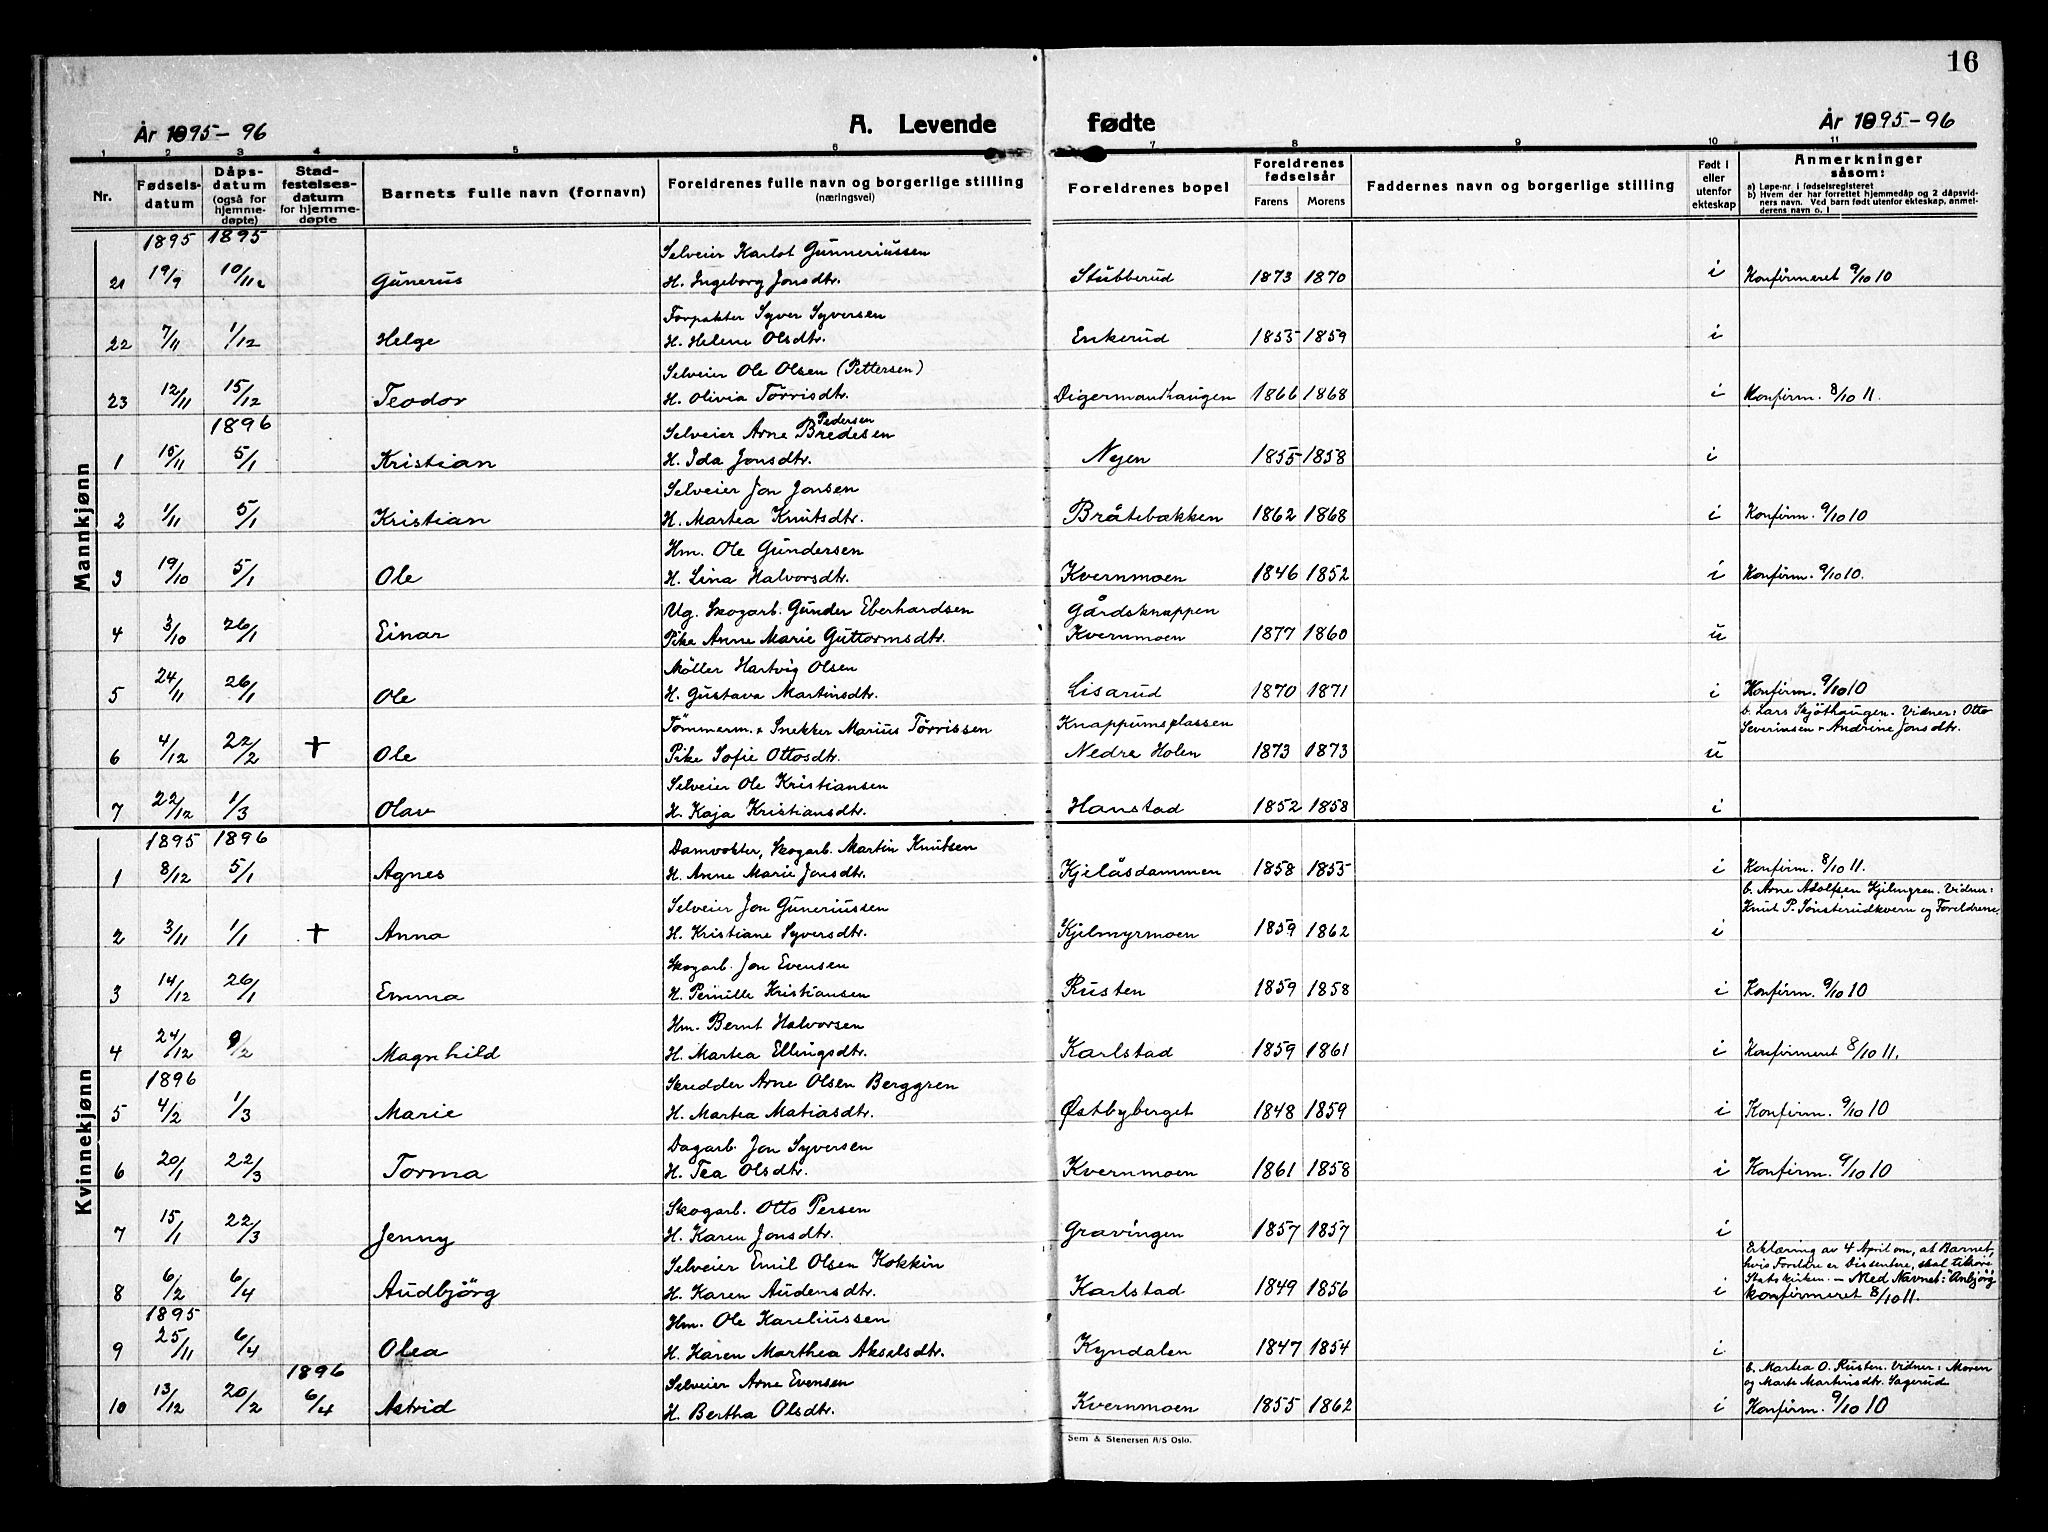 16
År 1895-96
A. Levende fødte
År 1895-96
1 2 3 4 5 6 7 8 9 10 11
Nr.
Fødsels-
datum
Dåps-
datum
(også for
hjemme-
døpte)
Stad-
festelses-
datum
for hjemme-
døpte
Barnets fulle navn (fornavn)
Foreldrenes fulle navn og borgerlige stilling
(næringsvei)
Foreldrenes bopel
Foreldrenes
fødselsår
Farens Morens
Faddernes navn og borgerlige stilling
Født i
eller
utenfor
ekteskap
Anmerkninger
såsom:
a) Løpe-nr. i fødselsregisteret
b) Hvem der har forrettet hjemmedåp og 2 dåpsvid-
ners navn. Ved barn født utenfor ekteskap, anmel-
derens navn o. l
Mannkjønn
1895 1895
Selveier Karlot Gunneriussen
21 19/9 10/11 Gunerus H. Ingeborg Jonsdtr. Stubberud 1873 1870 i Konfirmeret 9/10 10
Forpakter Syver Syversen
22 7/11 1/12 Helge H. Helene Olsdtr. Enkerud 1855 1859 i
Selveier Ole Olsen (Pettersen)
23 12/11 15/12 Teodor H. Olivia Tørrisdtr. Digermandhaugen 1866 1868 i Konfirm. 8/10 11.
1896
Pedersen
Selveier Arne Bredesen
1 15/11 5/1 Kristian H. Ida Jonsdtr. Nyen 1855 1858 i
Selveier Jon Jonsen
2 1/11 5/1 Kristian H. Martea Knutsdtr. Bråtebakken 1862 1868 i Konfirm. 9/10 10
Hm. Ole Gundersen
3 19/10 5/1 Ole H. Lina Halvorsdtr. Kvernmoen 1846 1852 i Konfirm. 9/10 10.
Ug. Skogarb. Gunder Eberhardsen Gårdsknappen
4 3/10 26/1 Einar Pike Anne Marie Guttormsdtr. Kvernmoen 1877 1860 u
Møller Hartvig Olsen
5 24/11 26/1 Ole H. Gustava Martinsdtr. Lisarud 1870 1871 i Konfirm. 9/10 10
Tømmerm. + Snekker Marius Tørrissen Knappumsplassen b. Lars Skjøthaugen. Vidner: Otto
Severinsen + Andrine Jonsdtr.
6 4/12 22/2 + Ole Pike Sofie Ottosdtr. Nedre Holen 1873 1873 u
Selveier Ole Kristiansen
7 22/12 1/3 Olav H. Kaja Kristiansdtr. Hanstad 1852 1858 i
Kvinnekjønn
1895 1896
Damvokter, Skogarb. Martin Knutsen
1 8/12 5/1 Agnes H. Anne Marie Jonsdtr. Kjelåsdammen 1858 1855 i Konfirm. 8/10 11.
Selveier Jon Guneriussen b. Arne Adolfsen Kjelmgren. Vidner:
Knut P. Sønsterudkvern og Foreldrene.
2 3/11 1/1 + Anna H. Kristiane Syversdtr. Kjelmyrmoen 1859 1862 i
Skogarb. Jon Evensen
3 14/12 26/1 Emma H. Pernille Kristiansen Rusten 1859 1858 i Konfirm. 9/10 10
Hm. Bernt Halvorsen
4 24/12 9/2 Magnhild H. Martea Ellingsdtr. Karlstad 1859 1861 i Konfirmeret 8/10 11.
1896
Skredder Arne Olsen Berggren
5 4/2 1/3 Marie H. Martea Matiasdtr. Østbyberget 1848 1859 i Konfirm. 9/10 10
Dagarb. Jon Syversen
6 20/1 22/3 Torma H. Tea Olsdtr. Kvernmoen 1861 1858 i Konfirm. 9/10 10
Skogarb. Otto Persen
7 15/1 22/3 Jenny H. Karen Jonsdtr. Gravingen 1857 1857 i
Selveier Emil Olsen Kokkin Erklæring av 4 April om, at Barnet,
hvis Foreldre er Dissentere, skal tilhøre
Statskirken. - Med Navnet: "Anbjørg"
8 6/2 6/4 Audbjörg H. Karen Audensdtr. Karlstad 1849 1856 i konfirmeret 8/10 11.
1895
Hm. Ole Kareliussen
9 25/11 6/4 Olea H. Karen Marthea Akselsdtr. Kyndalen 1847 1854 i
1896
Selveier Arne Evensen b. Martea O. Rusten. Vidner: Moren
og Marte Martinsdtr. Sagerud
10 13/12 20/2 6/4 Astrid H. Bertha Olsdtr. Kvernmoen 1855 1862 i Konfirm. 9/10 10
Sem & Stenersen A/S Oslo.